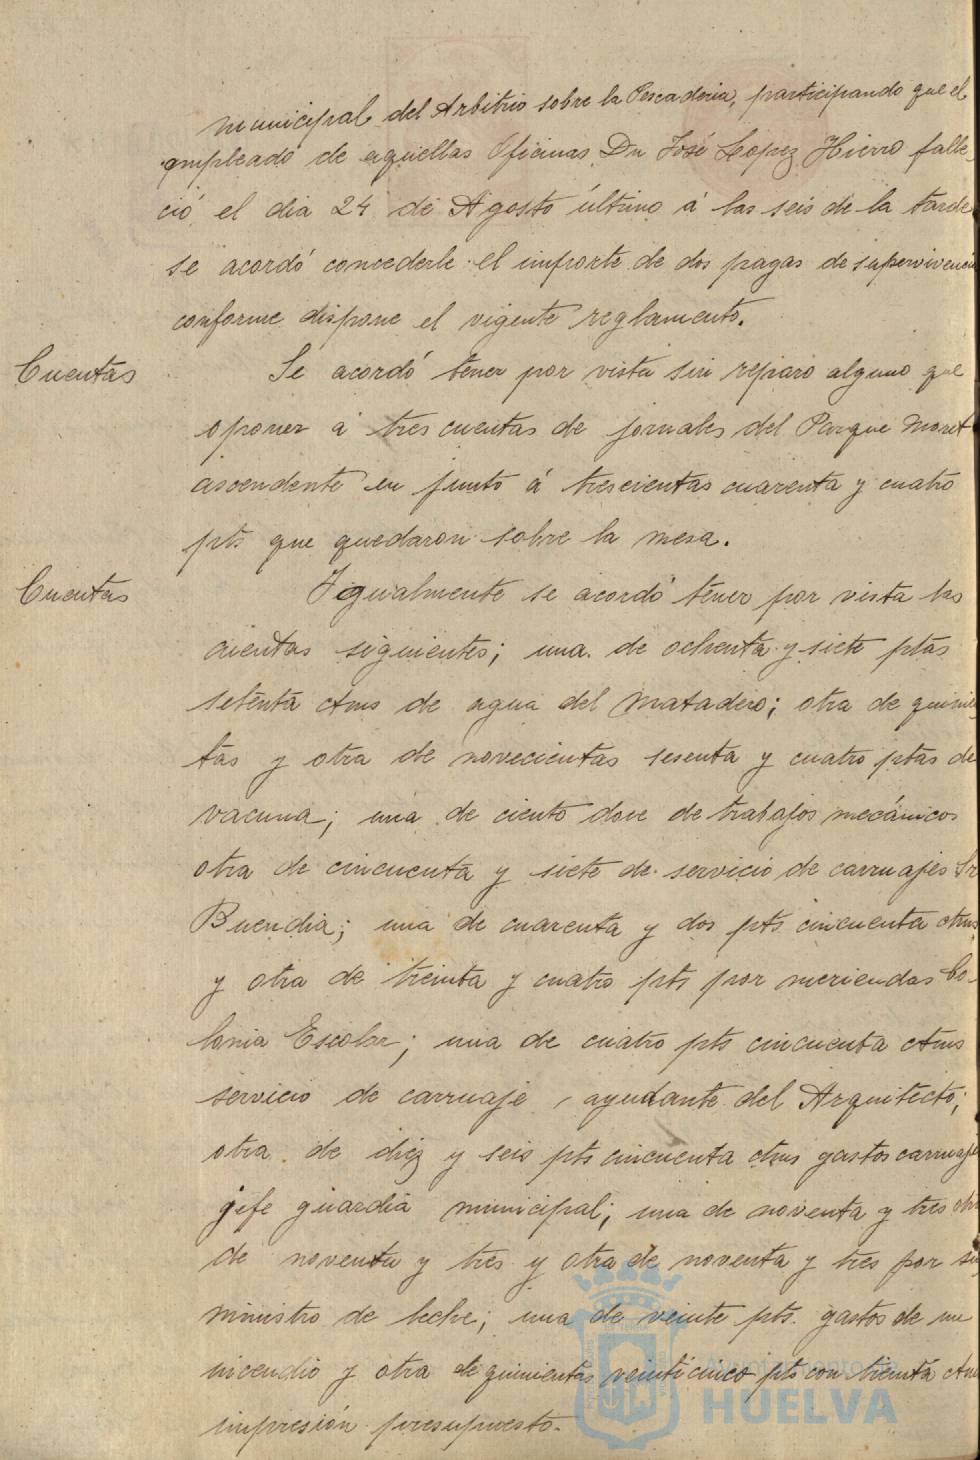 municipal del Arbitrio sobre la Pescaderia, participando que el
empleado de aquellas Oficinas Dn José Lopez Hierro falle-
ció el dia 24 de Agosto último á las seis de la tarde
se acordó concederle el importe de dos pagas de supervivencia
conforme dispone el vigente reglamento.
Cuentas
Se acordó tener por vista sin reparo alguno que
oponer á tres cuentas de jornales del Parque Moret
ascendente en junto á trescientas cuarenta y cuatro
pts que quedaron sobre la mesa.
Cuentas
Igualmente se acordó tener por vista las
cuentas siguientes; una de ochenta y siete ptas
setenta ctms de agua del Matadero; otra de quinien
tas y otra de novecientas sesenta y cuatro ptas de
vacuna; una de ciento doce de trabajos mecánicos
otra de cincuenta y siete de servicio de carruajes Sr
Buendia; una de cuarenta y dos pts cincuenta ctms
y otra de treinta y cuatro pts por meriendas Co-
lonia Escolar; una de cuatro pts cincuenta ctms
servicio de carruaje ayudante del Arquitecto;
otra de diez y seis pts cincuenta ctms gastos carruaje
jefe guardia municipal; una de noventa y tres otra
de noventa y tres y otra de noventa y tres por su
ministro de leche; una de veinte pts. gastos de un
incendio y otra de quinientas veinticinco pts con treinta ctms
impresión presupuesto.
Ayuntamiento de
HUELVA